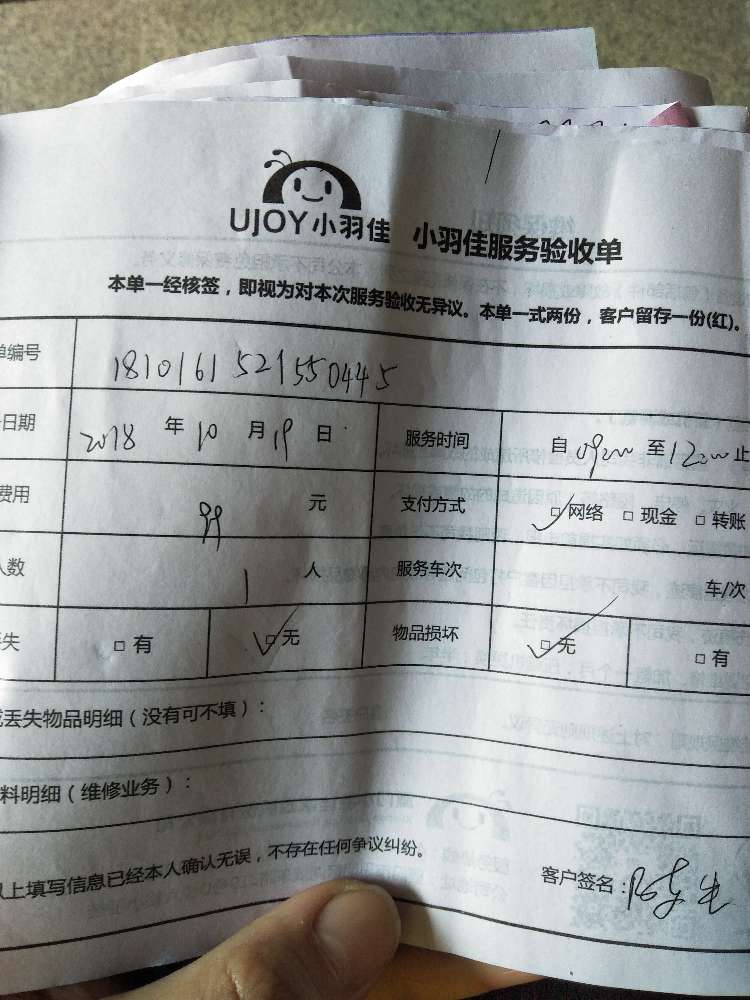 UJOY小羽佳 小羽佳服务验收单
本单一经核签，即视为对本次服务验收无异议。本单一式两份，客户留存一份(红)。
单编号 181016152155044​5
日期 2018 年 10 月 19 日 服务时间 自 0900 至 1200 止
费用 99 元 支付方式 □网络 □现金 □转账
人数 1 人 服务车次 车/次
失 □有 □无 物品损坏 □无 □有
或丢失物品明细（没有可不填）：
料明细（维修业务）：
以上填写信息已经本人确认无误，不存在任何争议纠纷。
客户签名：陈先生